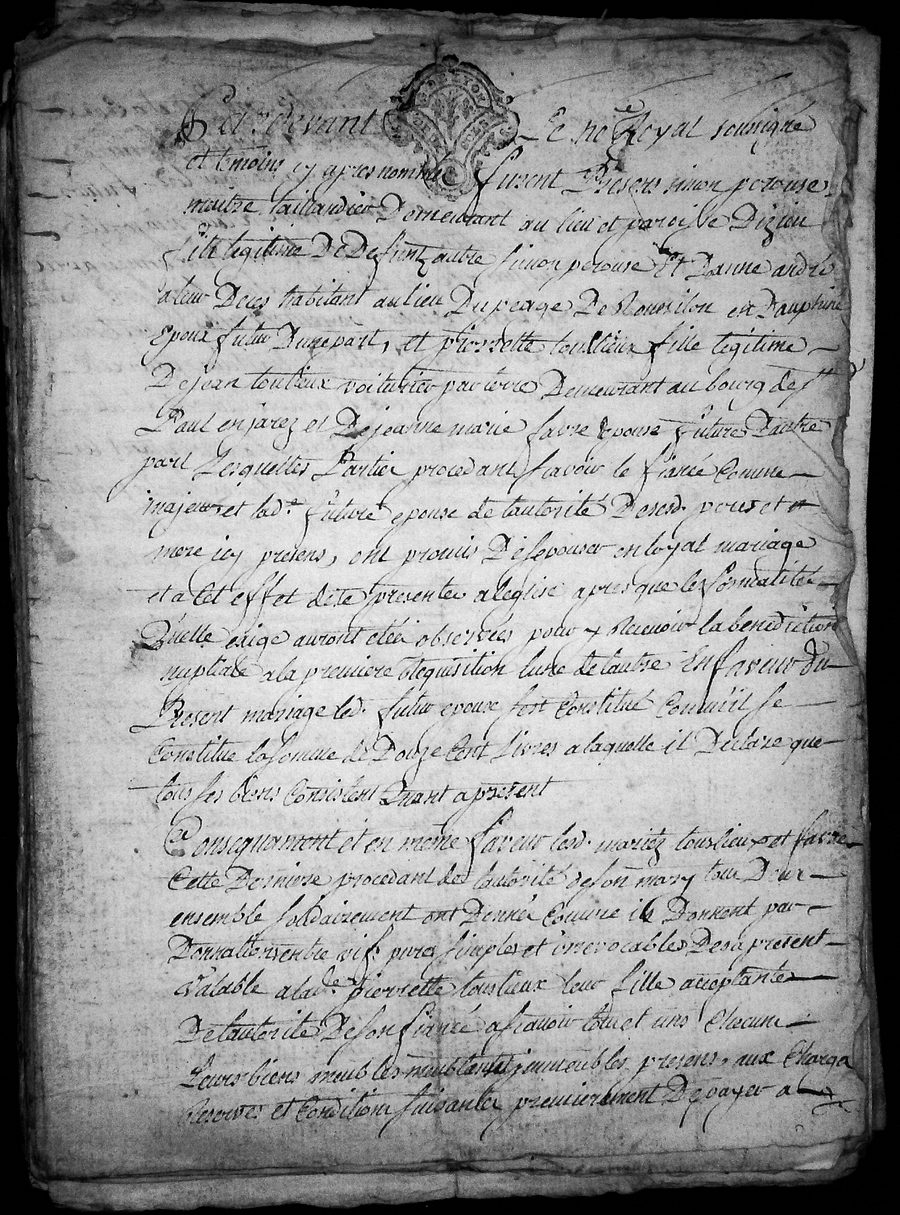 Par devant Le no.re Royal soussigné
et temoins cy apres nommé furent Presens simon perouse
maitre taillandier Demeurant au lieu et paroisse Dizieu
fils legitime De Defunt autre Simon perouse Et Danne andré
a leur Deces habitant au lieu Du peage De Rousillon en Dauphiné
epoux futur Dune part, et pierrette touslieux fille legitime
De jean touslieux voiturier par terre Demeurant au bourg de st
Paul en jarez et De jeanne marie favre epouse future Dautre
part Lesquelles Partie procedant savoir le fiancé Comme
majeur et lad.e future epouse de lautorité Desesd. pere et
mere icy presens, ont promis De sepouser en loyal mariage
et a Cet effet de se presenter a leglise apres que les formalités
Quelle exige auront eté observées pour y Recevoir la benediction
nuptiale a la premiere Requisition lune de lautre En faveur du
Present mariage led. futur epoux sest Constitué Comme il se
Constitue la somme de Douze Cent Livres a laquelle il Declare que
tous ses biens Consistent Quant apresent
Consequamment et en même faveur lesd. mariez touslieux et favre
Cette Derniere procedant de lautorité de son mary tous Deux
ensemble solidairement ont Donné Comme ils Donnent par
Donnation entre vifs pure simple et irrevocable Des a present
Valable a lad.e pierrette touslieux leur fille acceptante
De lautorité De son fiancé a savoir tous et uns Chacuns
Leurs biens meubles immeubles presens, aux Charges
Reserves et Conditions suivantes premierement De payer a